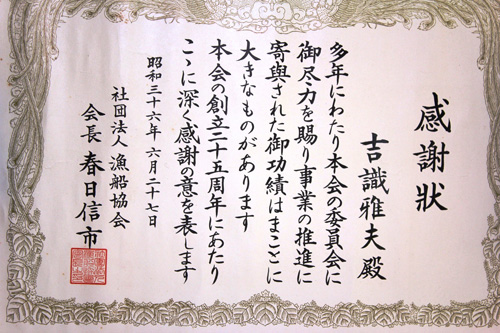 感謝狀
吉識雅夫殿
多年にわたり本会の委員会に
御尽力を賜り事業の推進に
寄與された御功績はまことに
大きなものがあります
本会の創立二十五周年にあたり
こゝに深く感謝の意を表します
昭和三十六年六月二十七日
社団法人漁船協会
会長春日信市